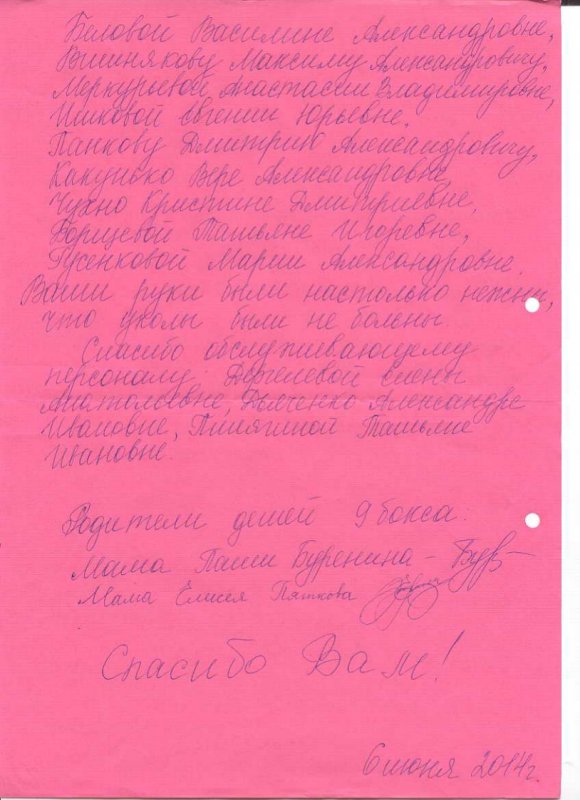 Беловой Василине Александровне,
Вишнякову Максиму Александровичу,
Меркурьевой Анастасии Владимировне,
Ишковой Евгении Юрьевне,
Панкову Дмитрию Александровичу,
Какунько Вере Александровне,
Чухно Кристине Дмитриевне,
Борщевой Татьяне Игоревне,
Гусенковой Марии Александровне.
Ваши руки были настолько нежны,
что уколы были не болены.
Спасибо обслуживающему
персоналу Елены
Анатольевне, Александре
Ивановне, Татьяне
Ивановне.
Родители детей 9 бокса:
Мама Паши Буренина – Бур
Мама Елисея Пяткова
Спасибо Вам!
6 июня 2014г.